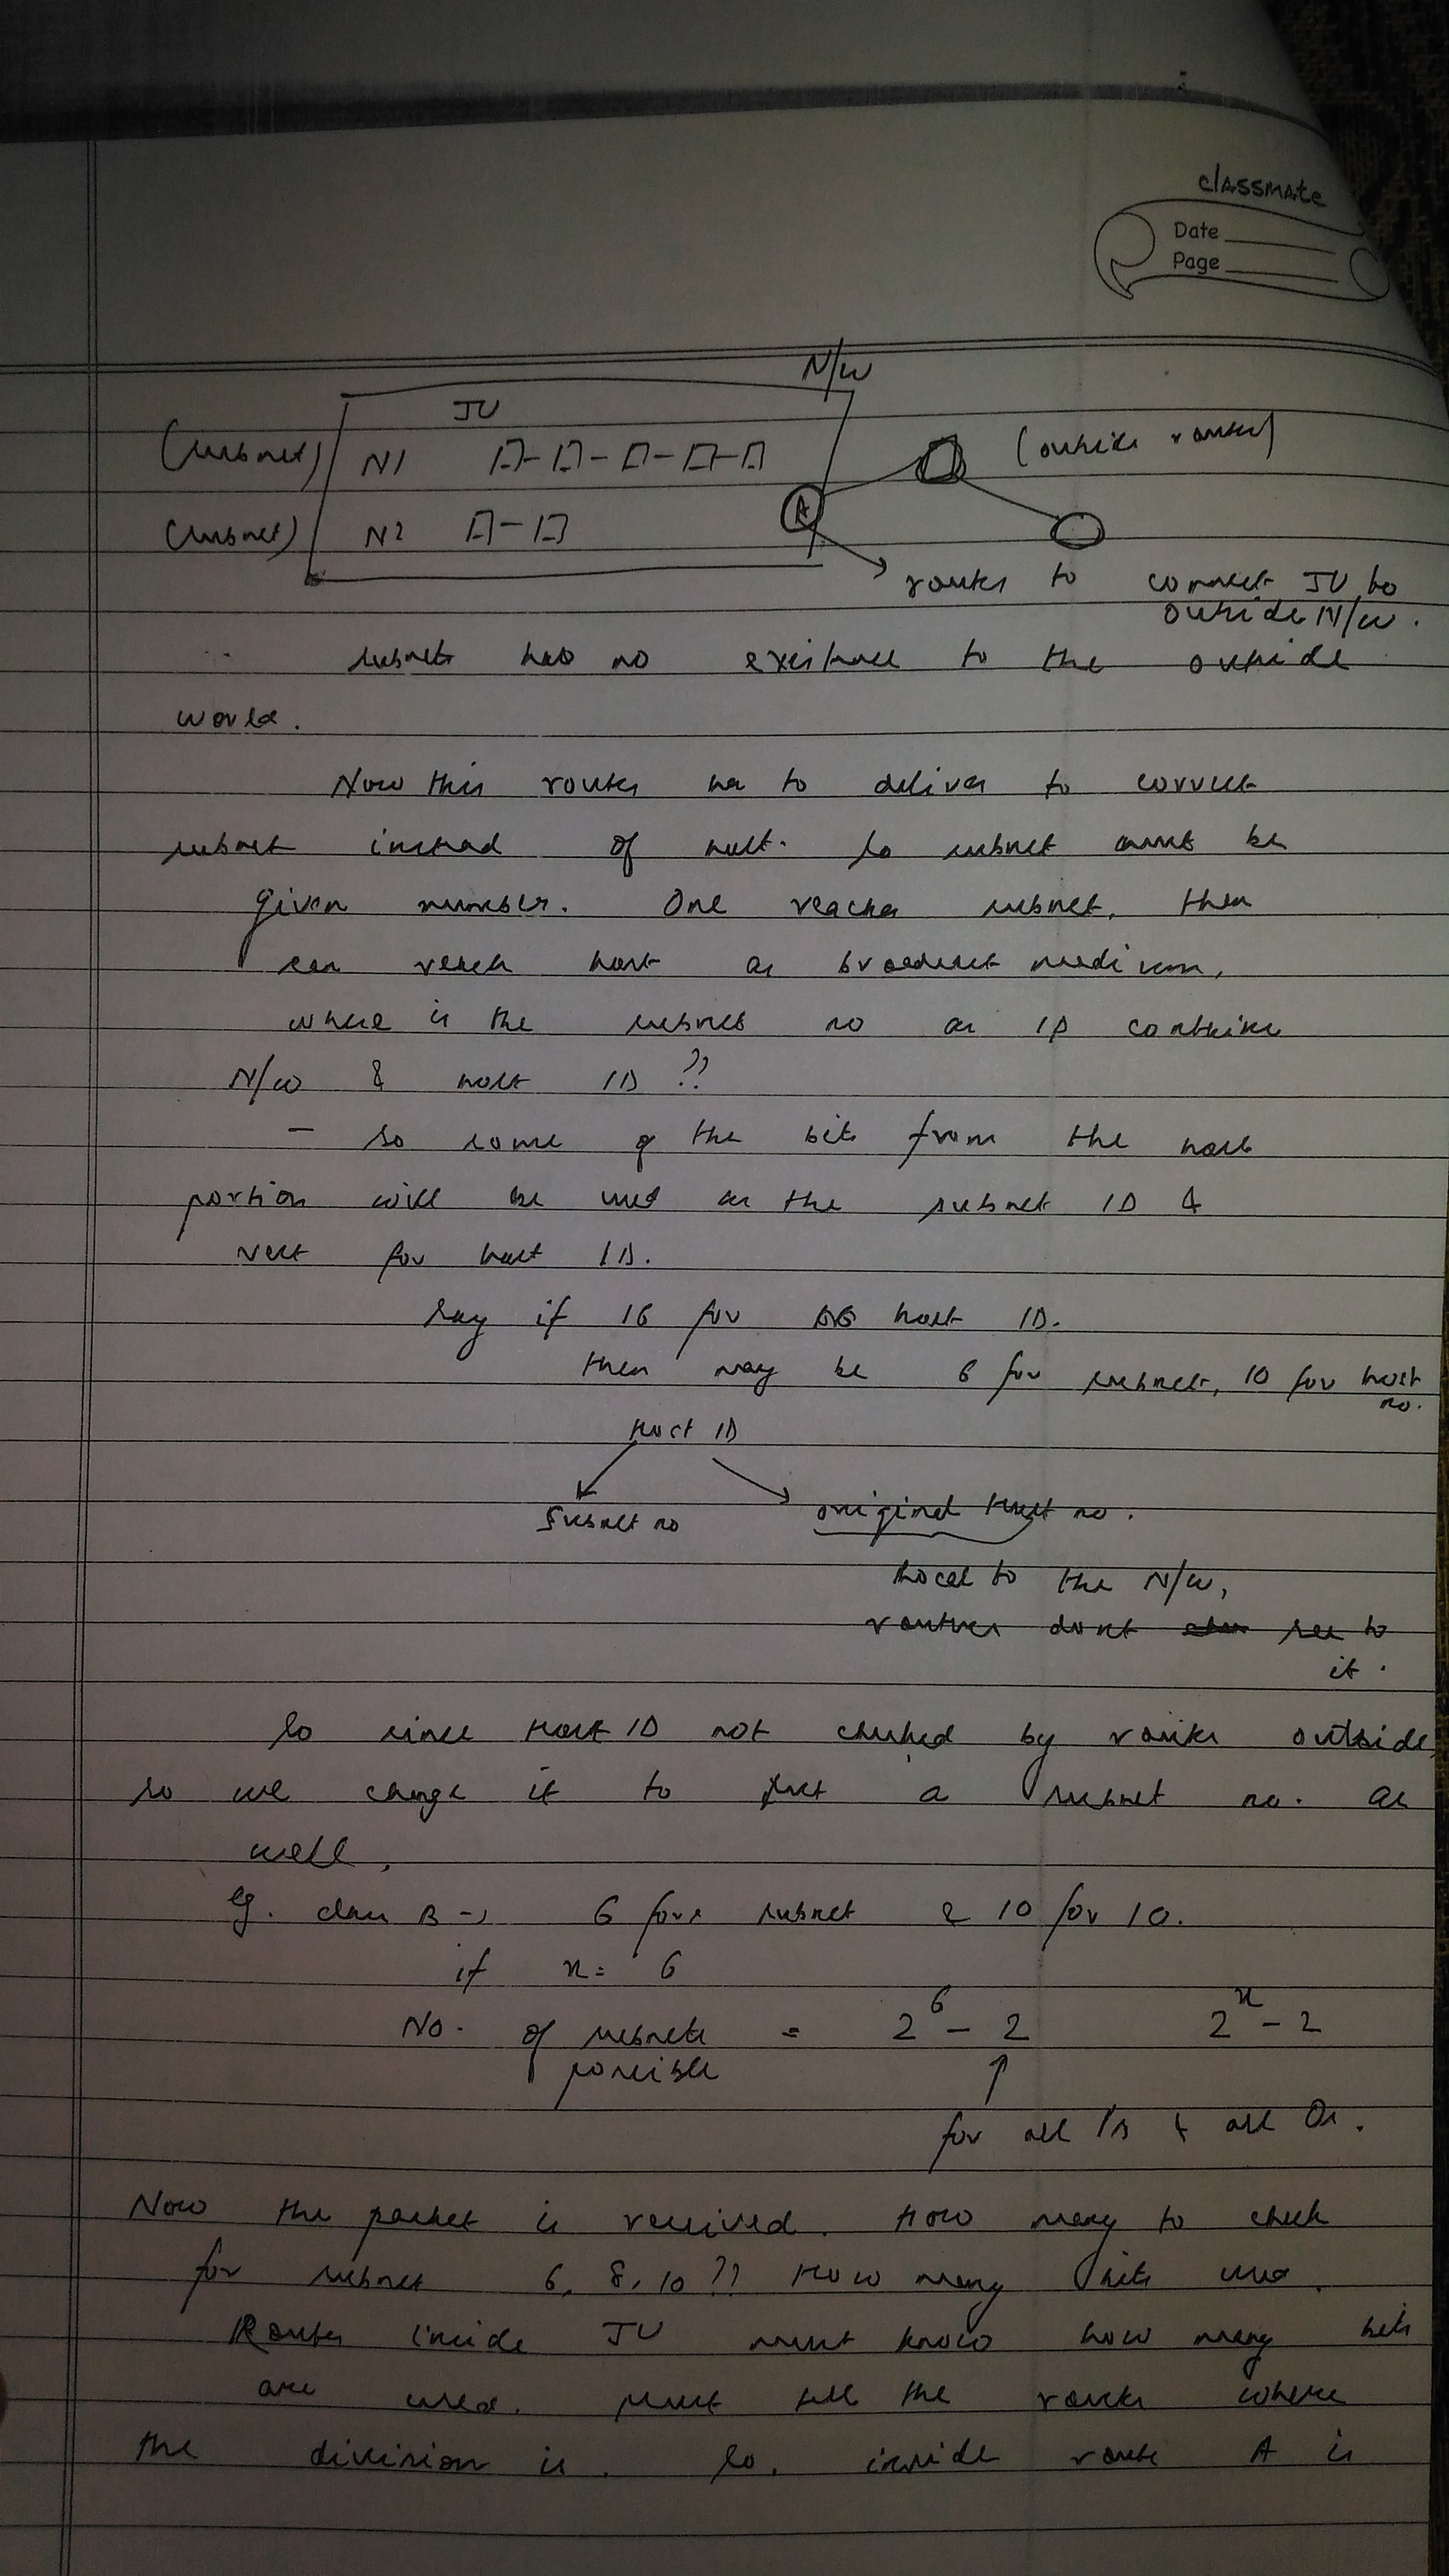 classmate
Date
Page
N/W
JU
(subnet) N1 (outside router)
A
(subnet) N2
router to connect JU to
outside N/W.
∴ subnets has no existence to the outside
world.
Now this router has to deliver to correct
subnet instead of host. So subnet must be
given number. One reaches subnet, then
can reach host as broadcast medium.
where is the subnet no as IP contains
N/W & host ID ??
- so some of the bits from the host
portion will be used as the subnet ID &
rest for host ID.
Say if 16 for host ID.
then may be 6 for subnet, 10 for host
no.
Host ID
Subnet no original Host no.
Local to the N/W,
routers dont see to
it.
So since Host ID not checked by router outside,
so we change it to put a subnet no. as
well.
Eg. class B → 6 for subnet & 10 for 10.
if n = 6
No. of subnets = 2^6 - 2 2^n - 2
possible
for all 1s & all 0s.
Now the packet is received. How many to check
for subnet 6, 8, 10 ?? How many bits used.
Router inside JU must know how many bits
are used. must tell the router where
the division is. So, inside router A is